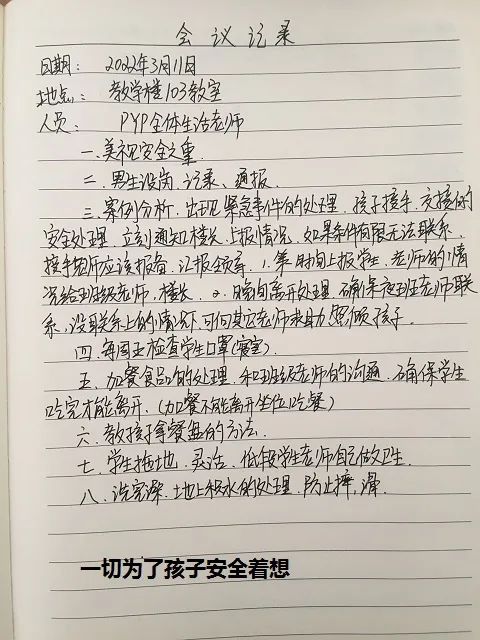 会议记录
日期: 2022年3月11日
地点: 教学楼103教室
人员: PYP全体生活老师
一.美视安全之重
二.男生设岗、记录、通报.
三.案例分析.出现紧急事件的处理.孩子接手、交接的
安全处理.立刻通知楼长.上报情况.如果条件有限无法联系,
接手老师应该报备.汇报领导.1.第一时间上报学生.老师的情
况给班级老师,楼长.2.晚间离开处理.确保夜班老师联
系,没联系上的情况可向其它老师求助照顾孩子.
四.每周五检查学生口罩(寝室)
五.加餐食品的处理.和班级老师的沟通.确保学生
吃完才能离开.(加餐不能离开坐位吃餐)
六.教孩子拿餐盘的方法.
七.学生拖地.灵活.低段学生老师自己做卫生.
八.洗完澡.地上积水的处理.防止摔,滑.
一切为了孩子安全着想